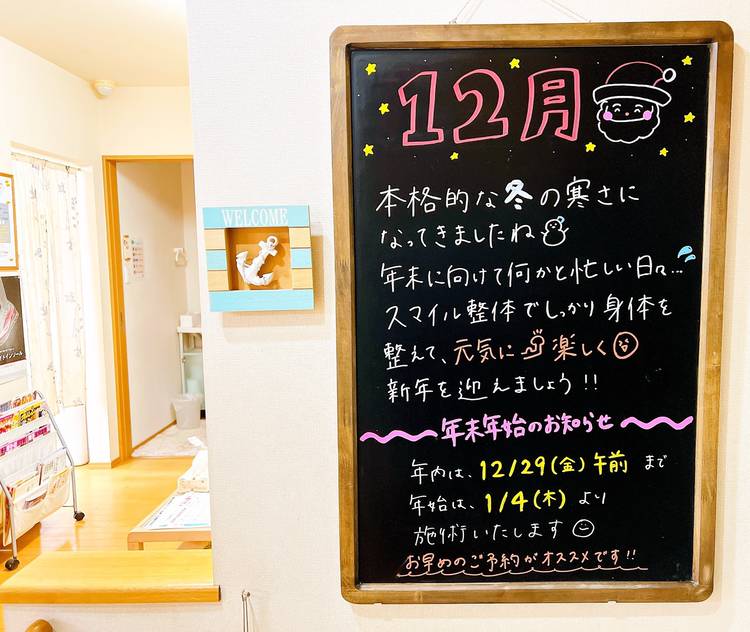 WELCOME
12月
本格的な冬の寒さに
なってきましたね
年末に向けて何かと忙しい日々…
スマイル整体でしっかり身体を
整えて、元気に楽しく
新年を迎えましょう!!
年末年始のお知らせ
年内は、12/29(金)午前まで
年始は、1/4(木)より
施術いたします
お早めのご予約がオススメです!!